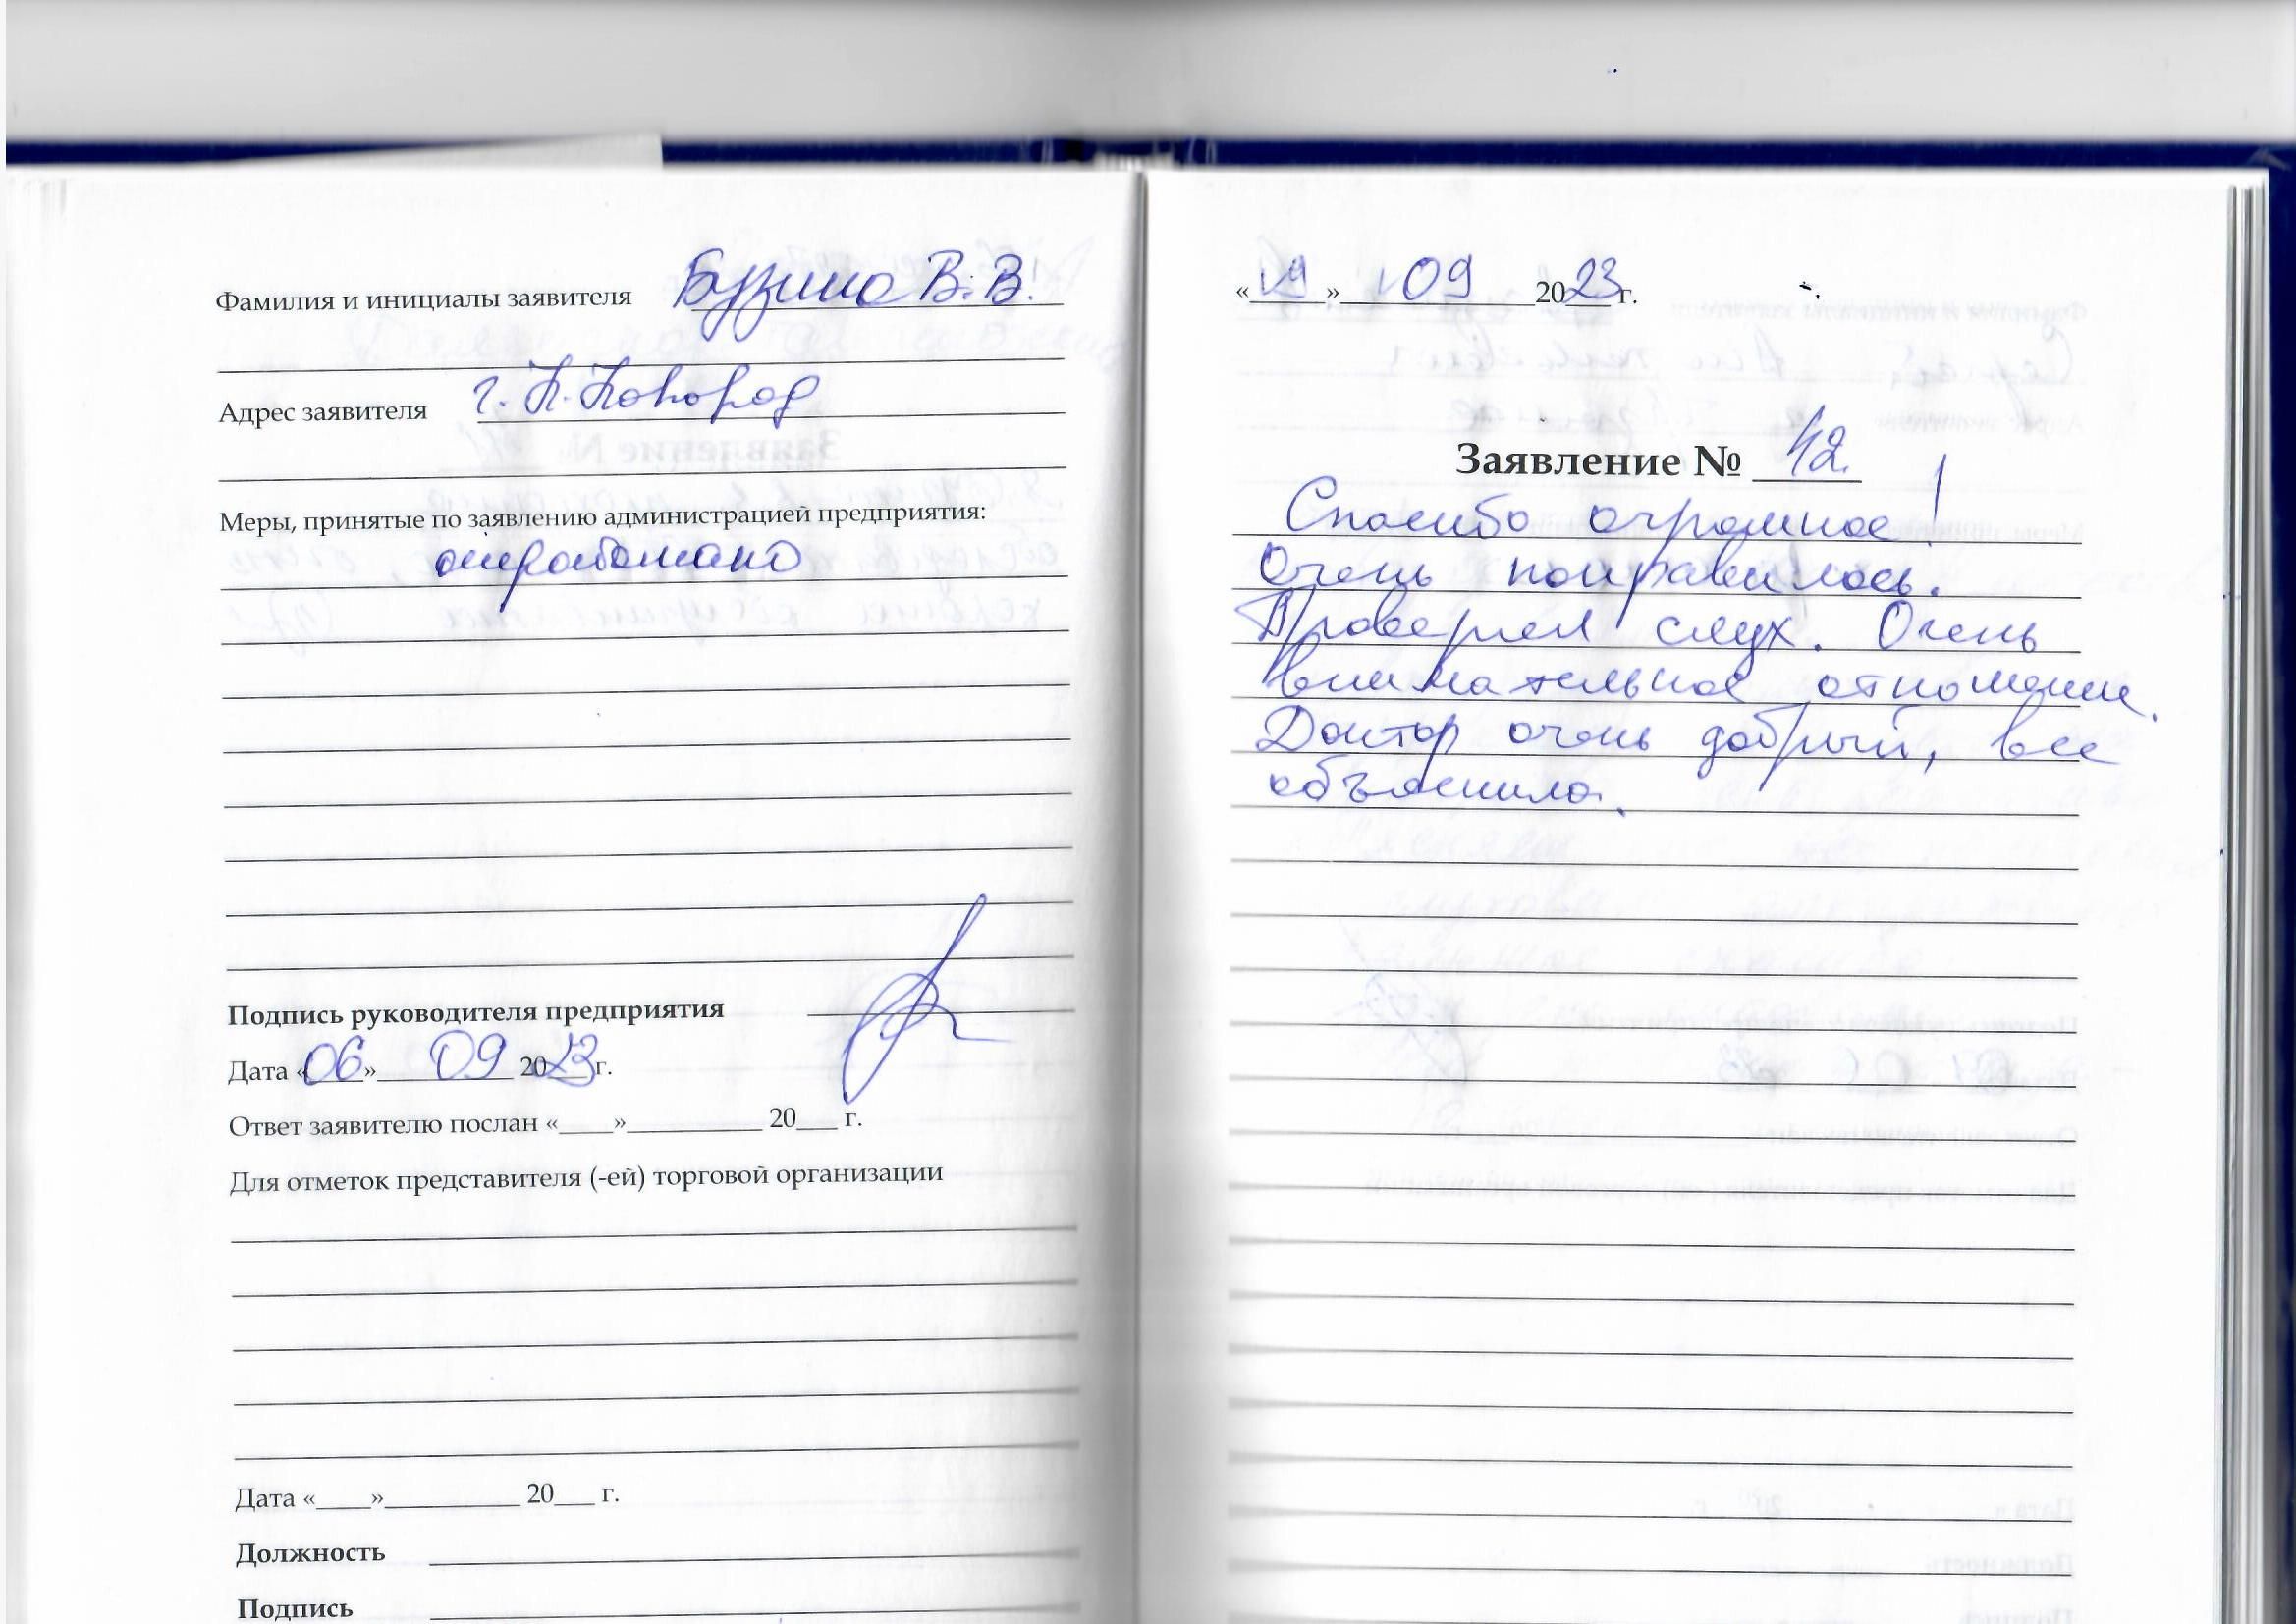 Фамилия и инициалы заявителя Бузина В.В.
Адрес заявителя г. Н.Новгород
Меры, принятые по заявлению администрацией предприятия:
отработано
Подпись руководителя предприятия
Дата «06» 09 2023 г.
Ответ заявителю послан «____»__________ 20___ г.
Для отметок представителя (-ей) торговой организации
Дата «____»__________ 20___ г.
Должность
Подпись
«19» 09 2023 г.
Заявление № 42.
Спасибо огромное!
Очень понравилось.
Проверил слух. Очень
внимательное отношение.
Доктор очень добрый, все
объяснила.